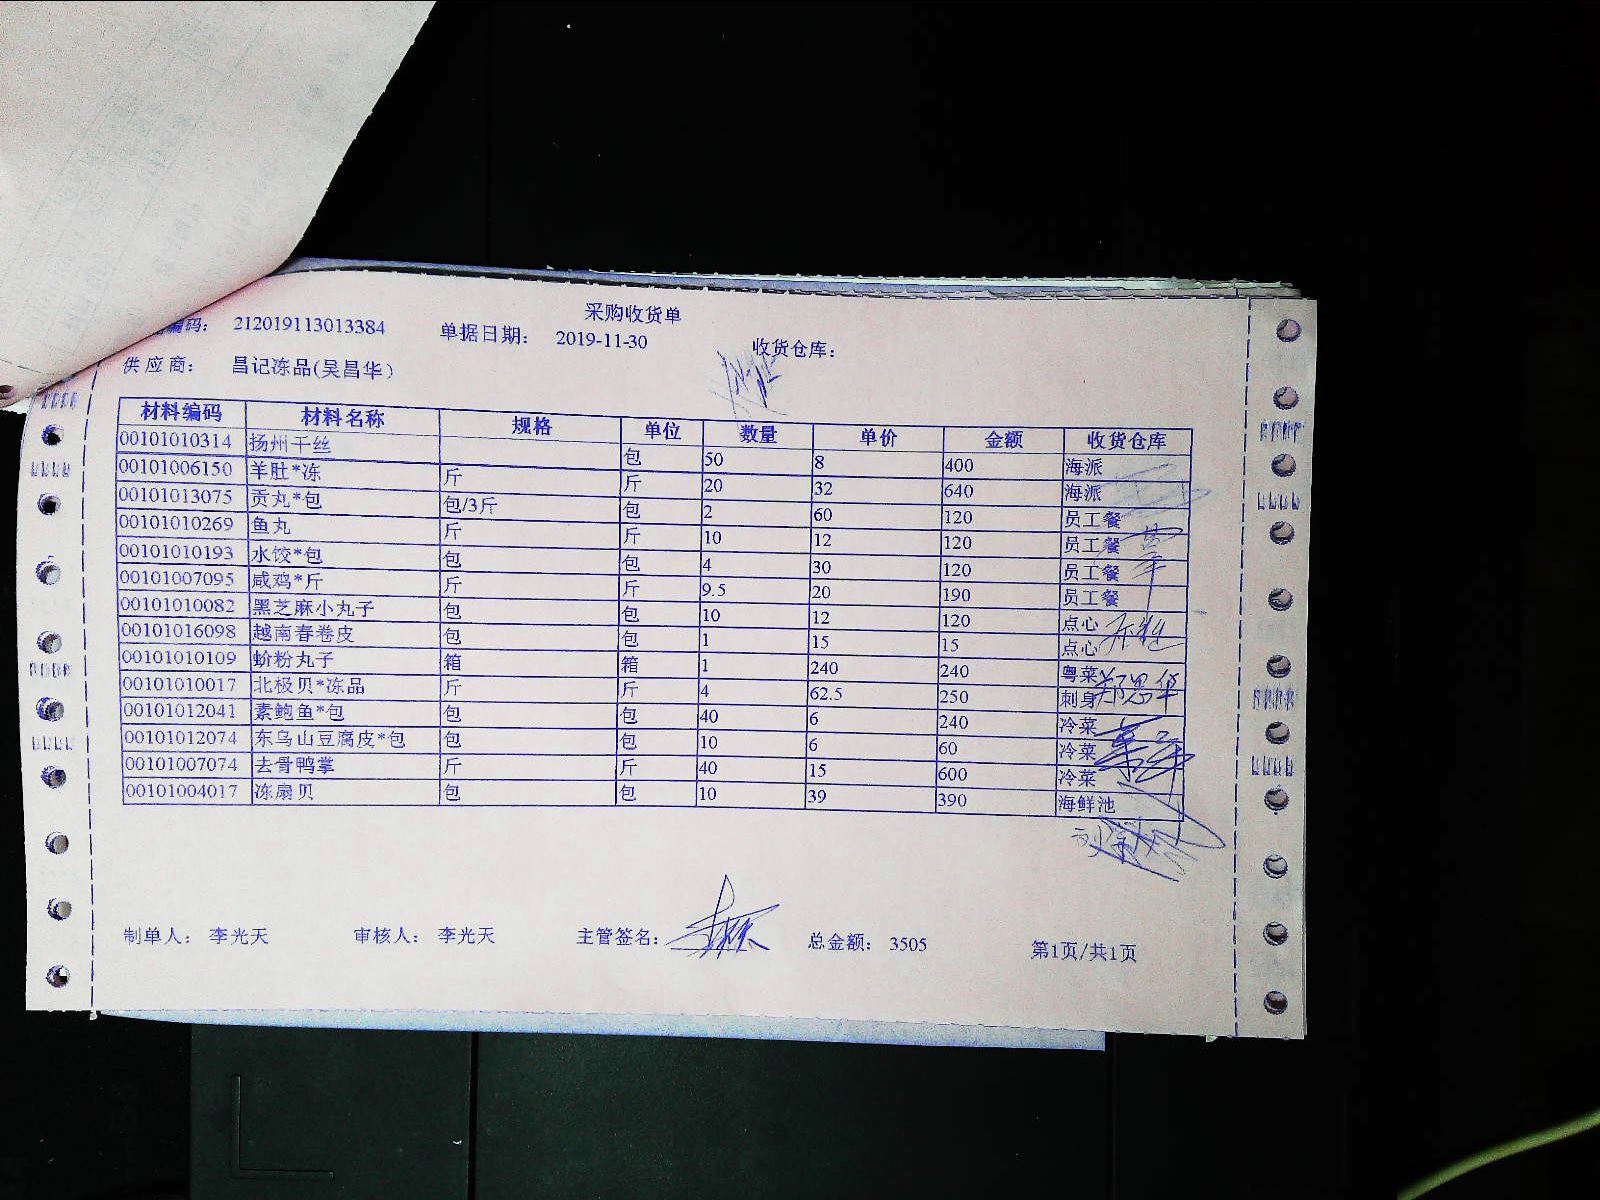 采购收货单
编码： 212019113013384 单据日期： 2019-11-30 收货仓库：
供应商： 昌记冻品(吴昌华)
材料编码 材料名称 规格 单位 数量 单价 金额 收货仓库
00101010314 扬州干丝 包 50 8 400 海派
00101006150 羊肚*冻 斤 斤 20 32 640 海派
00101013075 贡丸*包 包/3斤 包 2 60 120 员工餐
00101010269 鱼丸 斤 斤 10 12 120 员工餐
00101010193 水饺*包 包 包 4 30 120 员工餐
00101007095 咸鸡*斤 斤 斤 9.5 20 190 员工餐
00101010082 黑芝麻小丸子 包 包 10 12 120 点心
00101016098 越南春卷皮 包 包 1 15 15 点心
00101010109 蚧粉丸子 箱 箱 1 240 240 粤菜
00101010017 北极贝*冻品 斤 斤 4 62.5 250 刺身
00101012041 素鲍鱼*包 包 包 40 6 240 冷菜
00101012074 东乌山豆腐皮*包 包 包 10 6 60 冷菜
00101007074 去骨鸭掌 斤 斤 40 15 600 冷菜
00101004017 冻扇贝 包 包 10 39 390 海鲜池
制单人： 李光天 审核人： 李光天 主管签名： 总金额： 3505 第1页/共1页